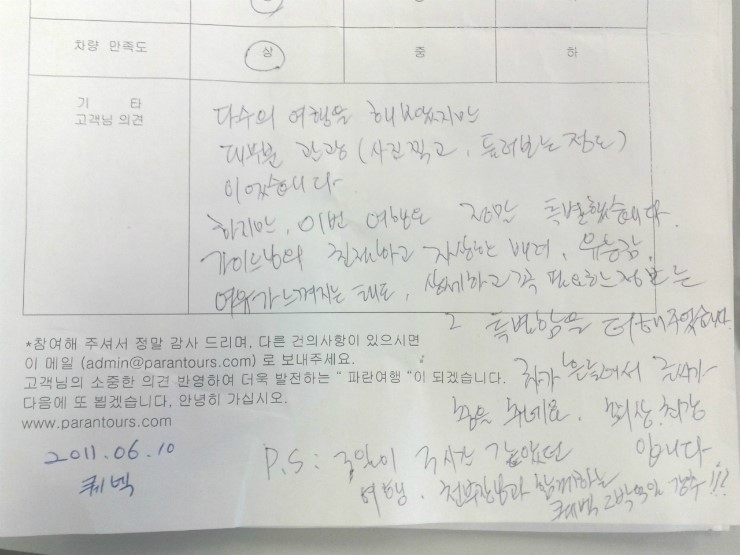 차량 만족도 상 중 하
기 타
고객님 의견
다수의 여행을 해보았지만
대부분 관광 (사진찍고, 둘러보는 정도)
이었습니다
하지만, 이번 여행도 정말 특별했습니다.
가이드님의 친절하고 자상한 배려, 유능함,
여유가 느껴지는 태도, 상세하고 꼭 필요한 정보는
그 특별함을 더해주었습니다.
*참여해 주셔서 정말 감사 드리며, 다른 건의사항이 있으시면
이 메일 (admin@parantours.com) 로 보내주세요.
고객님의 소중한 의견 반영하여 더욱 발전하는 “ 파란여행 ”이 되겠습니다.
다음에 또 뵙겠습니다, 안녕히 가십시오.
www.parantours.com
춤을 추네요. 최상, 최강
입니다
2011.06.10
퀘벡
P.S : 3일이 3시간 같았던
여행. 함께하는
퀘벡 2박3일 강추!!!